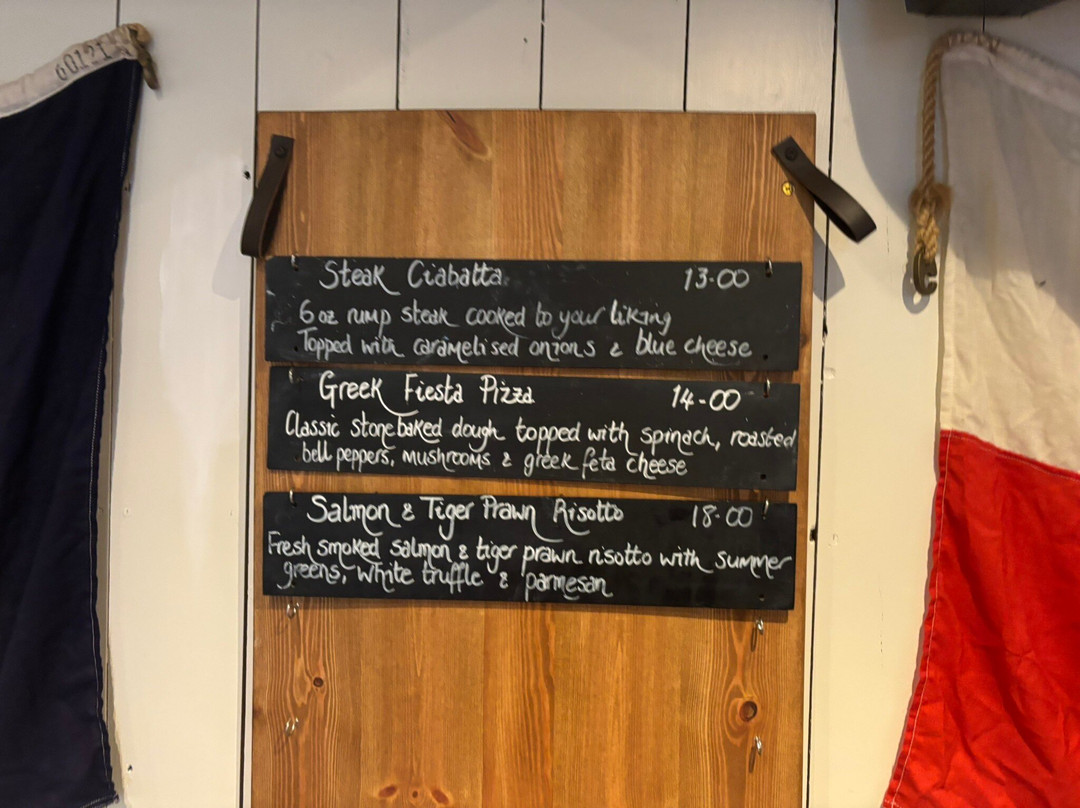 60121
Steak Ciabatta 13-00
6oz rump steak cooked to your liking
Topped with caramelised onions & blue cheese
Greek Fiesta Pizza 14-00
Classic stonebaked dough topped with spinach, roasted
bell peppers, mushrooms & greek feta cheese
Salmon & Tiger Prawn Risotto 18-00
Fresh smoked salmon & tiger prawn risotto with summer
greens, white truffle & parmesan